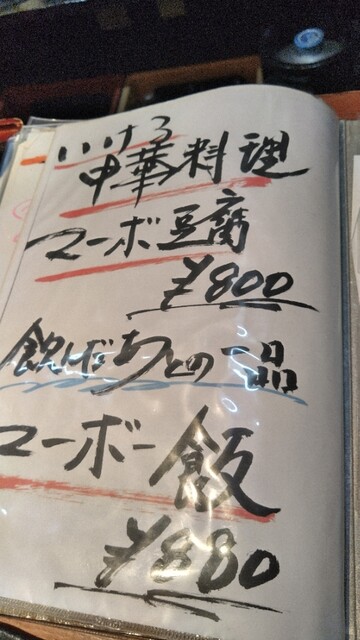 いける
中華料理
マーボ豆腐
¥800
飲んだあとの一品
マーボー飯
¥880